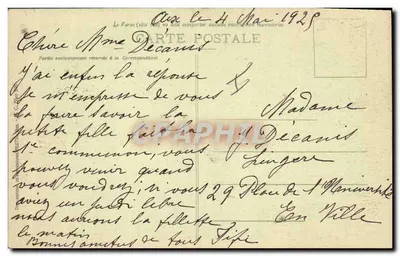 Aix le 4 Mai 1925
CARTE POSTALE
Chère Mme Décanis
Partie exclusivement réservée à la Correspondance
J'ai enfin la réponse
Je m'empresse de vous
la faire savoir la
petite fille fait la
1e communion, vous
pouvez venir quand
vous voudrez, si vous
aviez un jeudi libre
nous aurons la fillette
le matin
de tous Fifi
Madame
J. Décanis
Lingère
29 Place de l'Université
En Ville